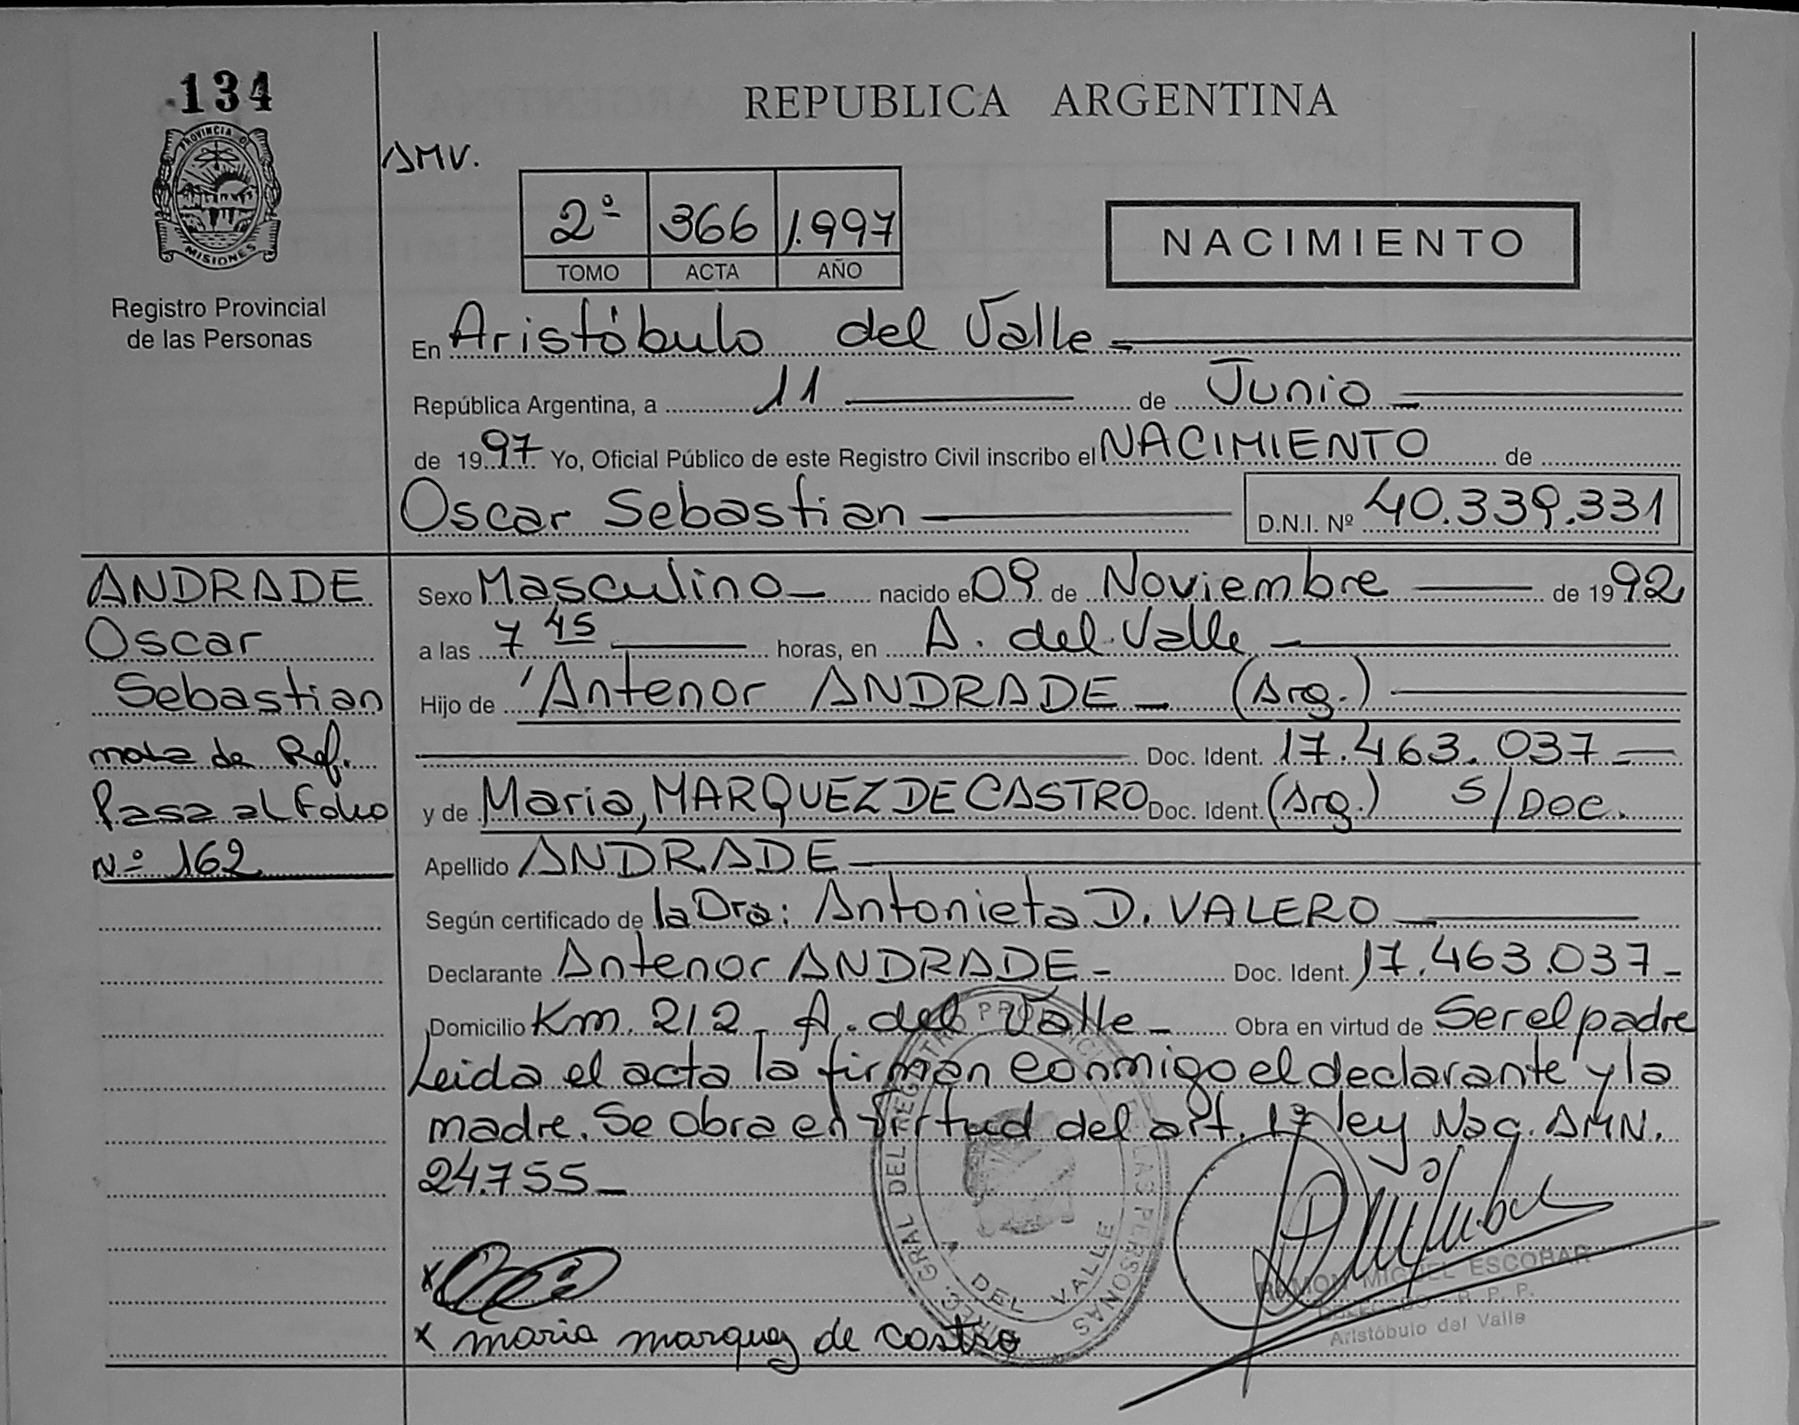 134
PROVINCIA DE
MISIONES
Registro Provincial
de las Personas
REPUBLICA ARGENTINA
AMV.
2º 366 1.997
TOMO ACTA AÑO
NACIMIENTO
En Aristóbulo del Valle
República Argentina, a 11 de Junio
de 1997 Yo, Oficial Público de este Registro Civil inscribo el NACIMIENTO de
Oscar Sebastian D.N.I. Nº 40.339.331
ANDRADE
Oscar
Sebastian
nota de Ref.
Pasa al Folio
Nº 162
Sexo Masculino nacido el 09 de Noviembre de 1992
a las 7 45 horas, en A. del Valle
Hijo de Antenor ANDRADE (Arg.)
Doc. Ident. 17.463.037
y de Maria, MARQUEZ DE CASTRO Doc. Ident. (Arg.) S/Doc.
Apellido ANDRADE
Según certificado de la Dra: Antonieta D. VALERO
Declarante Antenor ANDRADE Doc. Ident. 17.463.037
Domicilio Km. 212 A. del Valle Obra en virtud de Ser el padre
Leida el acta la firman conmigo el declarante y la
madre. Se obra en virtud del art. 1º ley Nac. AMN.
24.755
x
x maria marquez de castro
DIREC. GRAL DEL REGISTRO PROVINCIAL DE LAS PERSONAS
A. DEL VALLE
RAMON MIGUEL ESCOBAR
DELEGADO R. P. P.
Aristóbulo del Valle